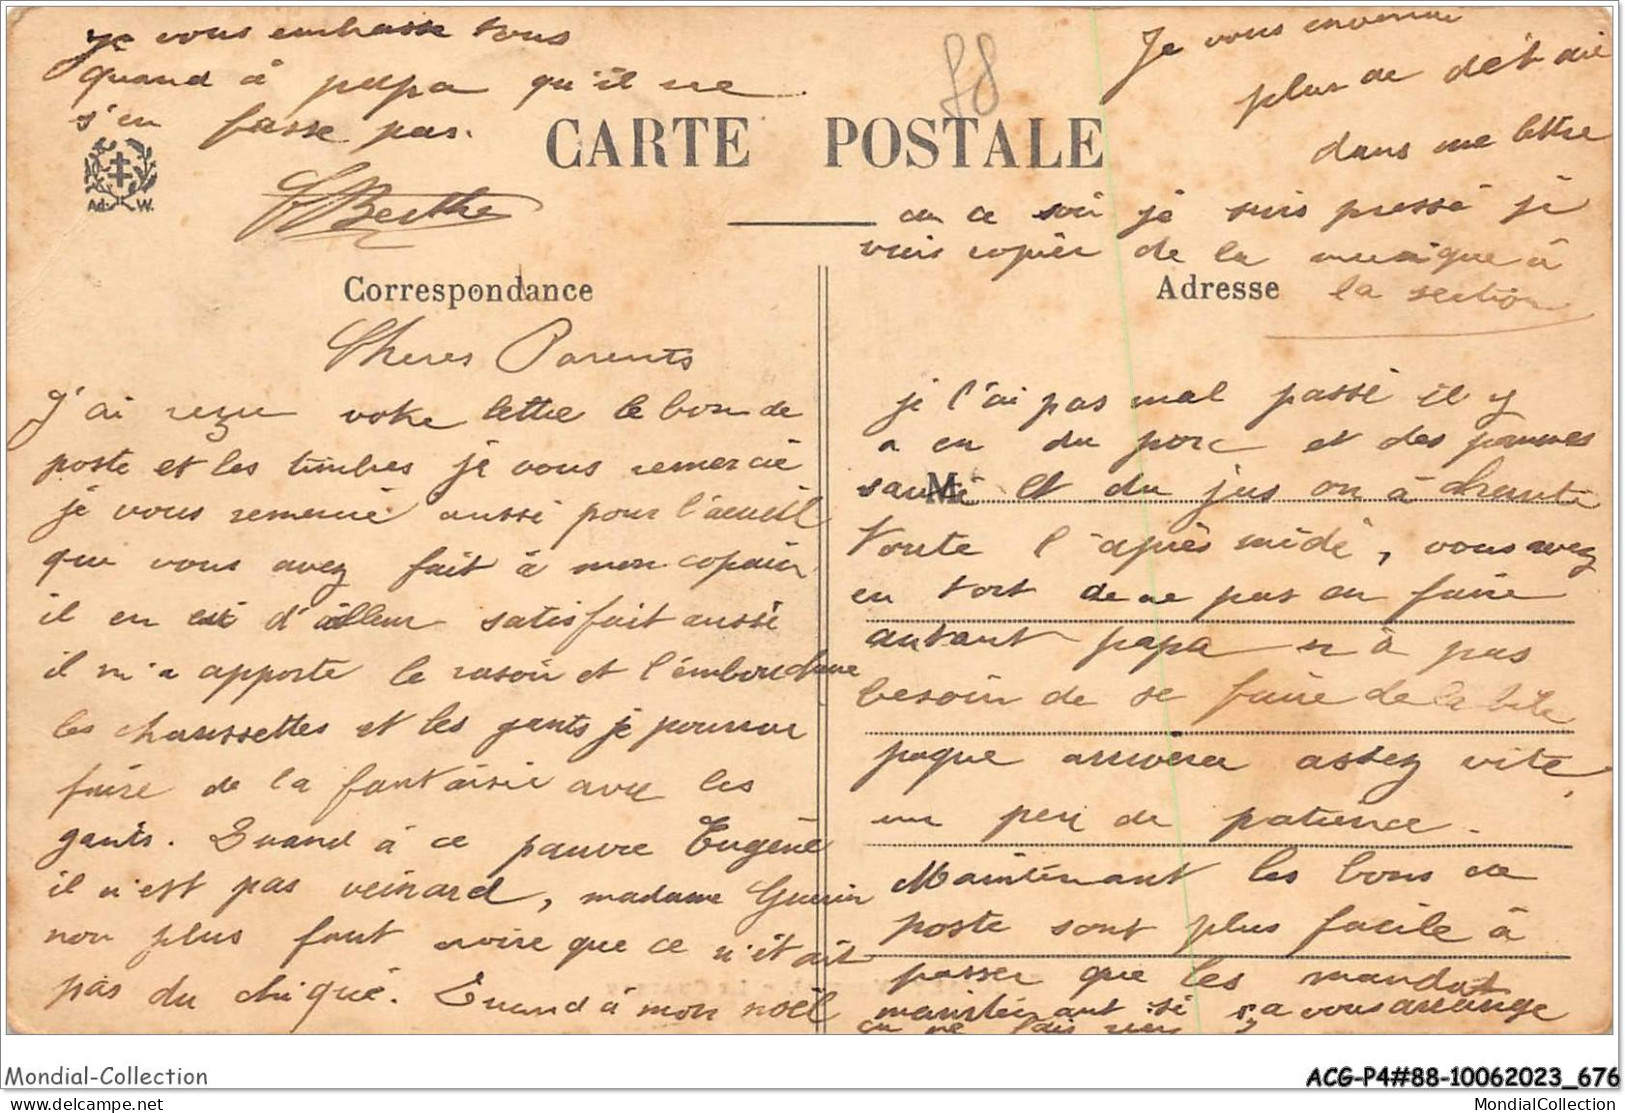 CARTE POSTALE
Ad. W.
Correspondance
Adresse
M
Cheres Parents
J'ai reçu votre lettre le bon de
poste et les timbres je vous remercie
je vous remercie aussi pour l'acueil
que vous avez fait à mon copain
il en est d'ailleur satisfait aussi
il m'a apporte le rasoir et l'embouchure
les chaussettes et les gants je pourrai
faire de la fantaisie avec les
gants. Quand à ce pauvre Eugène
il n'est pas veinard, madame Guerin
non plus faut croire que ce n'était
pas du chiqué. Quand à mon noël
je l'ai pas mal passé il y
a eu du porc et des pommes
sauté et du jus on à chanté
toute l'après midi, vous avez
eu tort de ne pas en faire
autant papa n'à pas
besoin de se faire de la bile
paque arrivera assez vite,
un peu de patience.
Maintenant les bons de
poste sont plus facile à
passer que les mandat
maintenant si ça vous arrange
ça ne fais rien
Je vous enverrai
plus de détail
dans une lettre
car ce soir je suis pressé je
vais copier de la musique à
la section
je vous embrasse tous
quand à papa qu'il ne
s'en fasse pas.
Berthe
88
Mondial-Collection
ACG-P4#88-10062023_676
delcampe.net
MondialCollection